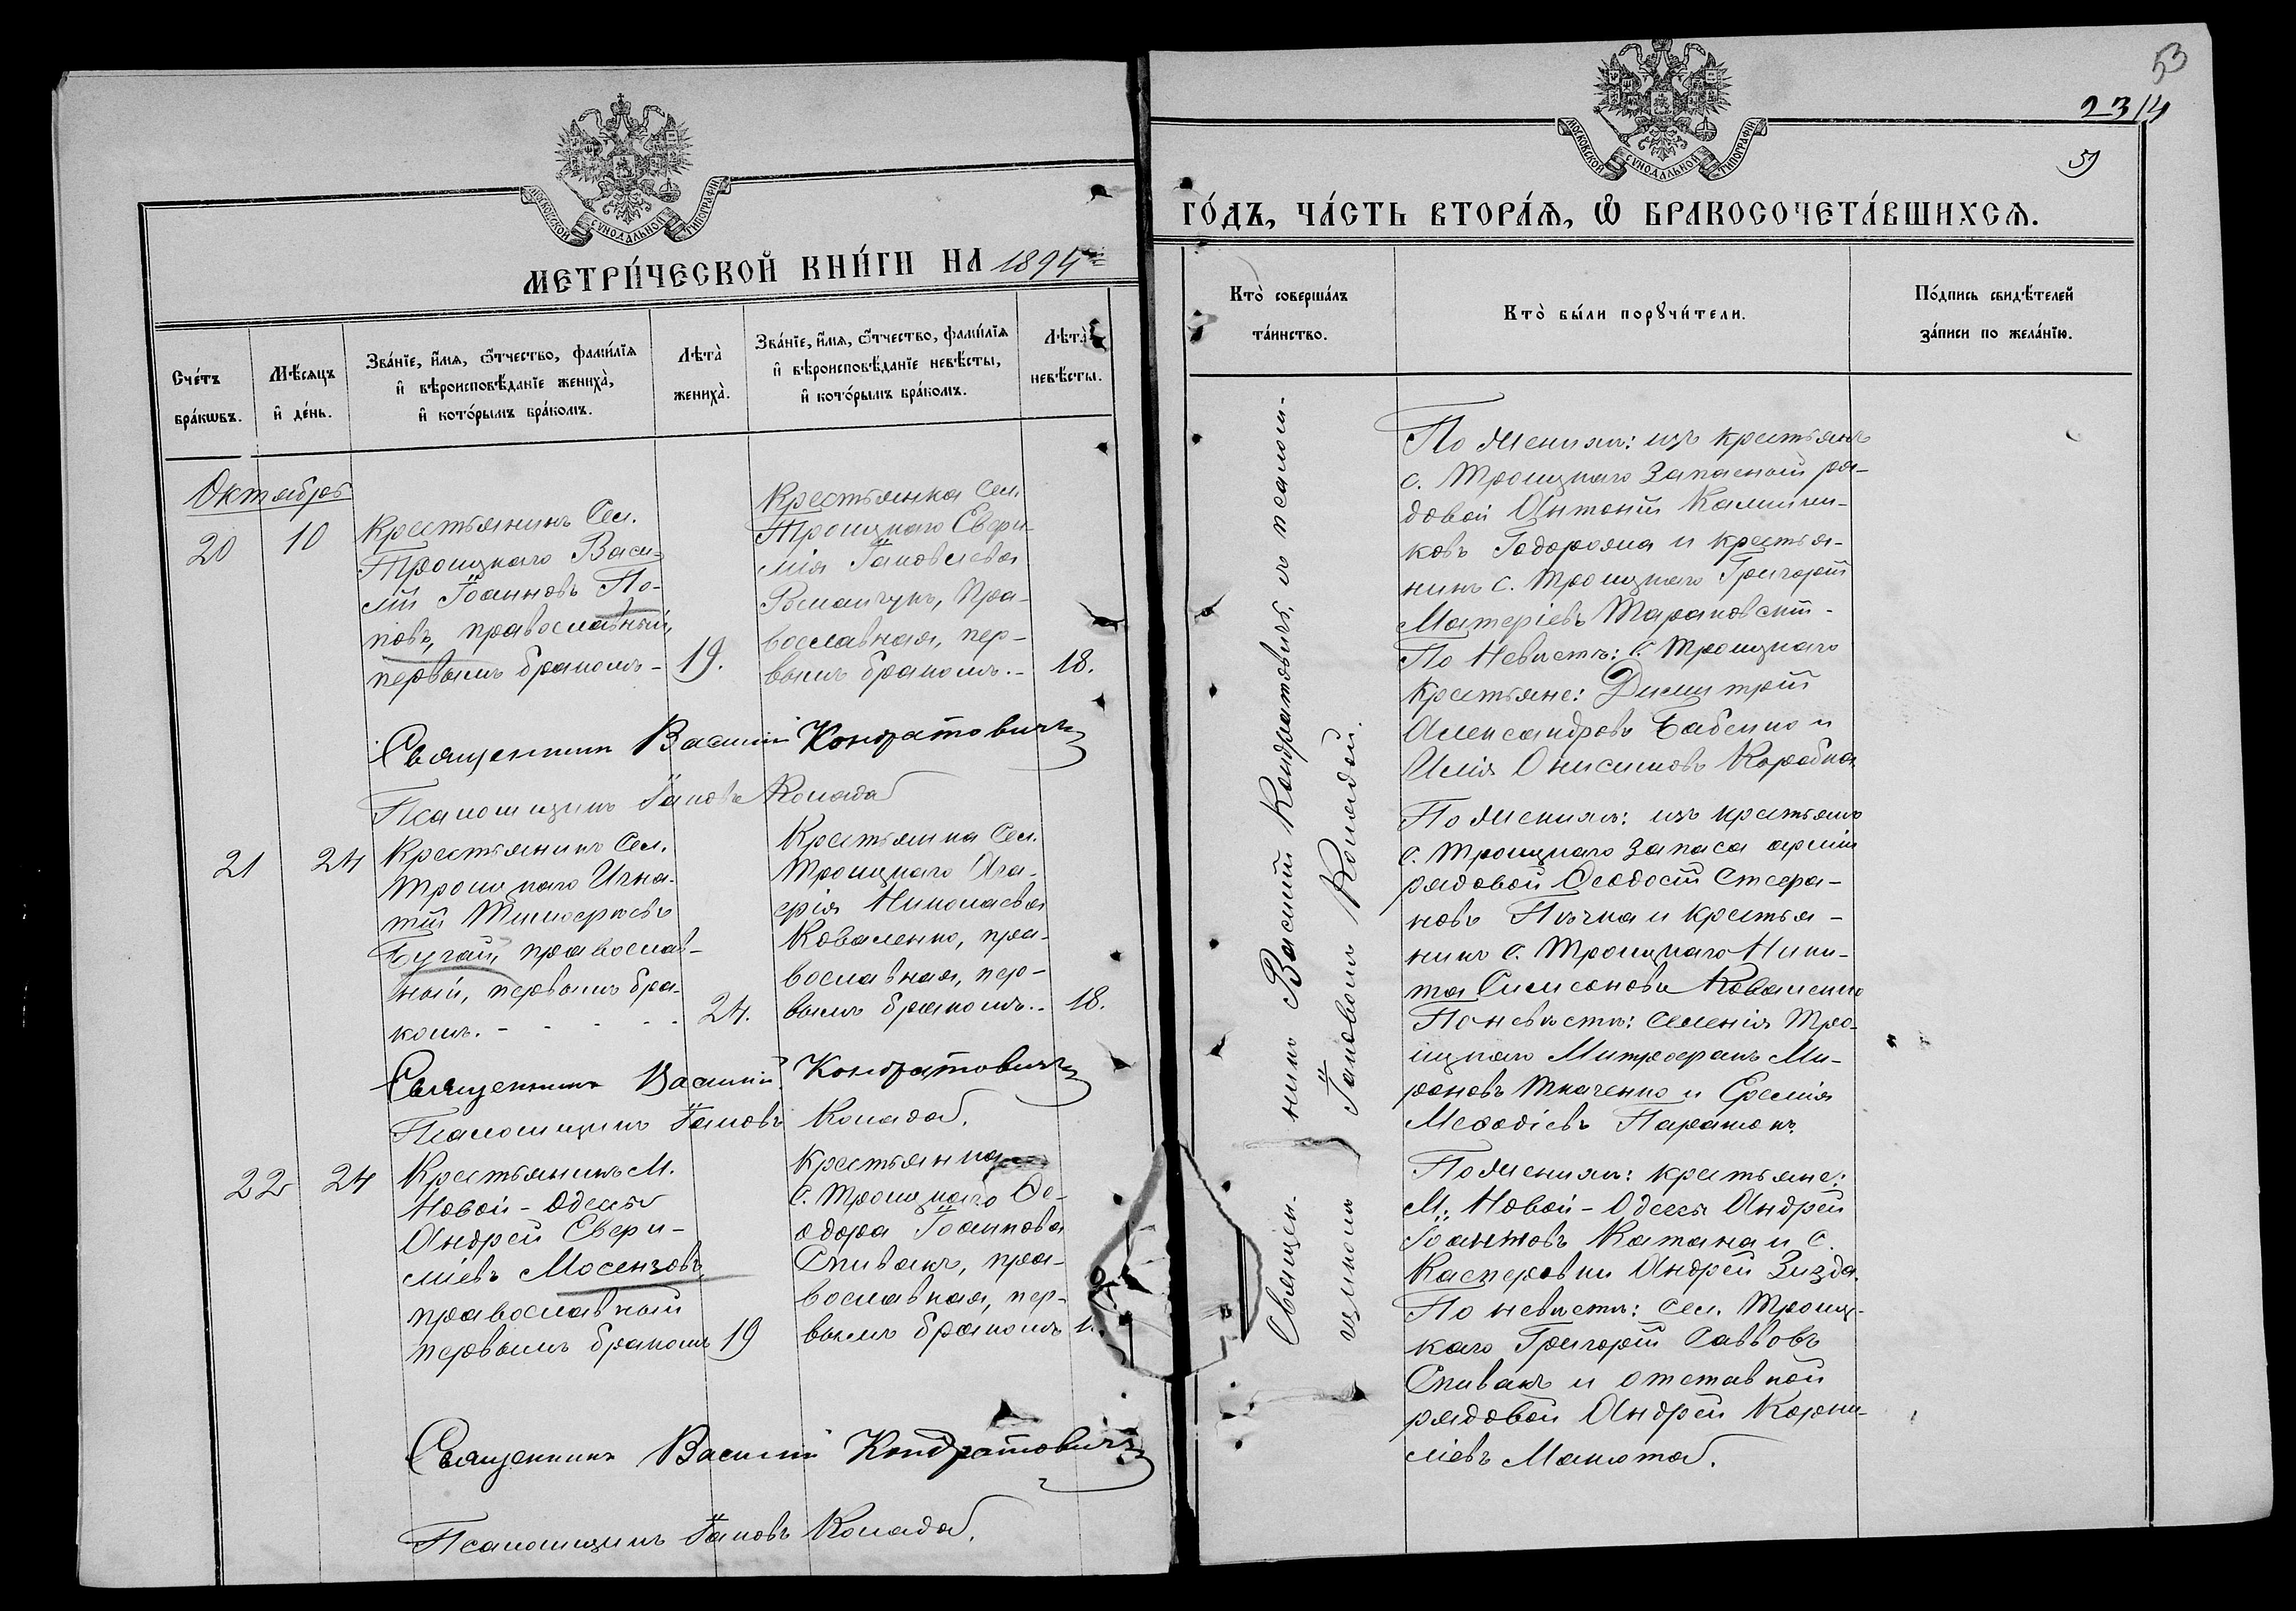 МОСКОВСКОЙ СУНОДАЛЬНОЙ ТИПОГРАФІИ
МЕТРИ́ЧЕСКОЙ КНИ́ГИ НА 1894
Сче́тъ бра́кѡвъ.
Мѣ́сяцъ и҆ де́нь.
Зва́нїе, и҆́мя, ѻ҆́тчество, фами́лїя и҆ вѣроисповѣ́данїе женихà, и҆ кото́рымъ бра́комъ.
Лѣтà женихà.
Зва́нїе, и҆́мя, ѻ҆́тчество, фами́лїя и҆ вѣроисповѣ́данїе невѣ́сты, и҆ кото́рымъ бра́комъ.
Лѣтà невѣ́сты.
Октября
20
10
Крестьянинъ Сел.
Троицкаго Васи-
лій Іоанновъ По-
повъ, православный,
первымъ бракомъ -
19.
Крестьянка Сел.
Троицкаго Еври-
мія Іаковлева
православная, пер-
вымъ бракомъ. -
18.
Священникъ Василій Кондратовичъ
Псаломщикъ Іаковъ Колада
21
24
Крестьянинъ Сел.
Троицкаго Игна-
тій Тимофеевъ
Бугай, православ-
ный, первымъ бра-
комъ. - - - - -
24.
Крестьянка Сел.
Троицкаго Ага-
фія Николаева
Коваленко, пра-
вославная, пер-
вымъ бракомъ. -
18.
Священникъ Василій Кондратовичъ
Псаломщикъ Іаковъ Колада.
22
24
Крестьянинъ М.
Новой-Одессы
Андрей Евфи-
міевъ Мосензовъ,
православный
первымъ бракомъ
19
Крестьянка
с. Троицкаго Ѳе-
одора Іоаннова
Спивакъ, пра-
вославная, пер-
вымъ бракомъ
Священникъ Василій Кондратовичъ
Псаломщикъ Іаковъ Колада.
53
МОСКОВСКОЙ СУНОДАЛЬНОЙ ТИПОГРАФІИ
ГО́ДЪ, ЧА́СТЬ ВТОРА́Я, Ѡ҆ БРАКОСОЧЕТА́ВШИХСЯ.
Кто̀ соверша́лъ та́инство.
Кто̀ бы́ли порꙋчи́тели.
По́дпись свидѣ́телей за́писи по жела́нїю.
Священ-
никъ Василій Кондратовичъ, съ псалом-
щикомъ Іаковомъ Коладой.
По женихѣ: изъ крестьянъ
с. Троицкаго Запасный ря-
довой Антоній Калинни-
ковъ Годорожа и крестья-
нинъ с. Троицкаго Григорій
Тарановскій -
По Невѣстѣ: с. Троицкаго
крестьяне: Димитрій
Александровъ Бабенко и
Илія Онисимовъ Коробка.
По женихѣ: изъ крестьянъ
с. Троицкаго запаса арміи
рядовой Ѳеодосій Стефа-
новъ Пѣчка и крестья-
нинъ с. Троицкаго Ники-
та Симеоновъ Коваленко
По невѣстѣ: селенія Тро-
ицкаго Митрофанъ Ми-
роновъ Ткаченко и Еремія
Меѳодіевъ
По женихѣ: крестьяне:
М. Новой-Одессы Андрей
Іоанновъ Катана и с.
Касперовки Андрей Зизда.
По невѣстѣ: сел. Троиц-
каго Григорій Саввовъ
Спивакъ и отставной
рядовой Андрей Корни-
ліевъ Макота.